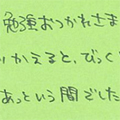 勉強おつかれさま
りかえると、びっく
あっという間でした